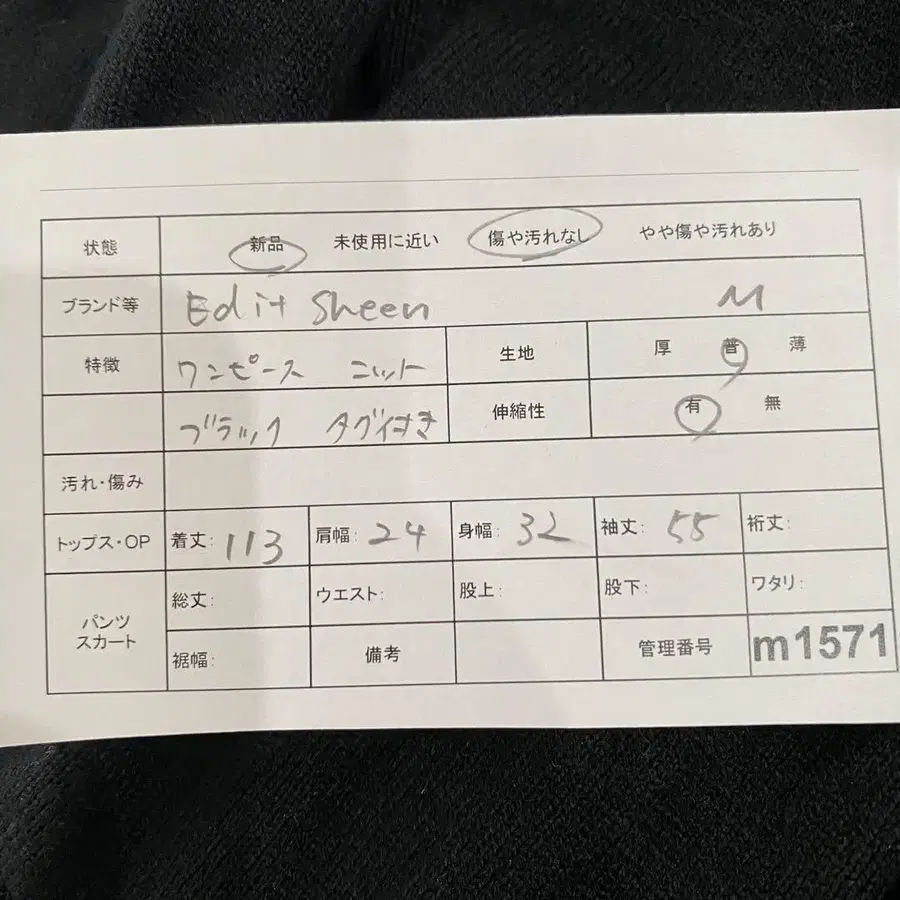 状態 新品 未使用に近い 傷や汚れなし やや傷や汚れあり
ブランド等 Edit Sheen M
特徴 ワンピース ニット 生地 厚 普 薄
ブラック タグ付き 伸縮性 有 無
汚れ・傷み
トップス・OP 着丈: 113 肩幅: 24 身幅: 32 袖丈: 55 裄丈:
パンツ スカート 総丈: ウエスト: 股上: 股下: ワタリ:
裾幅: 備考 管理番号 m1571